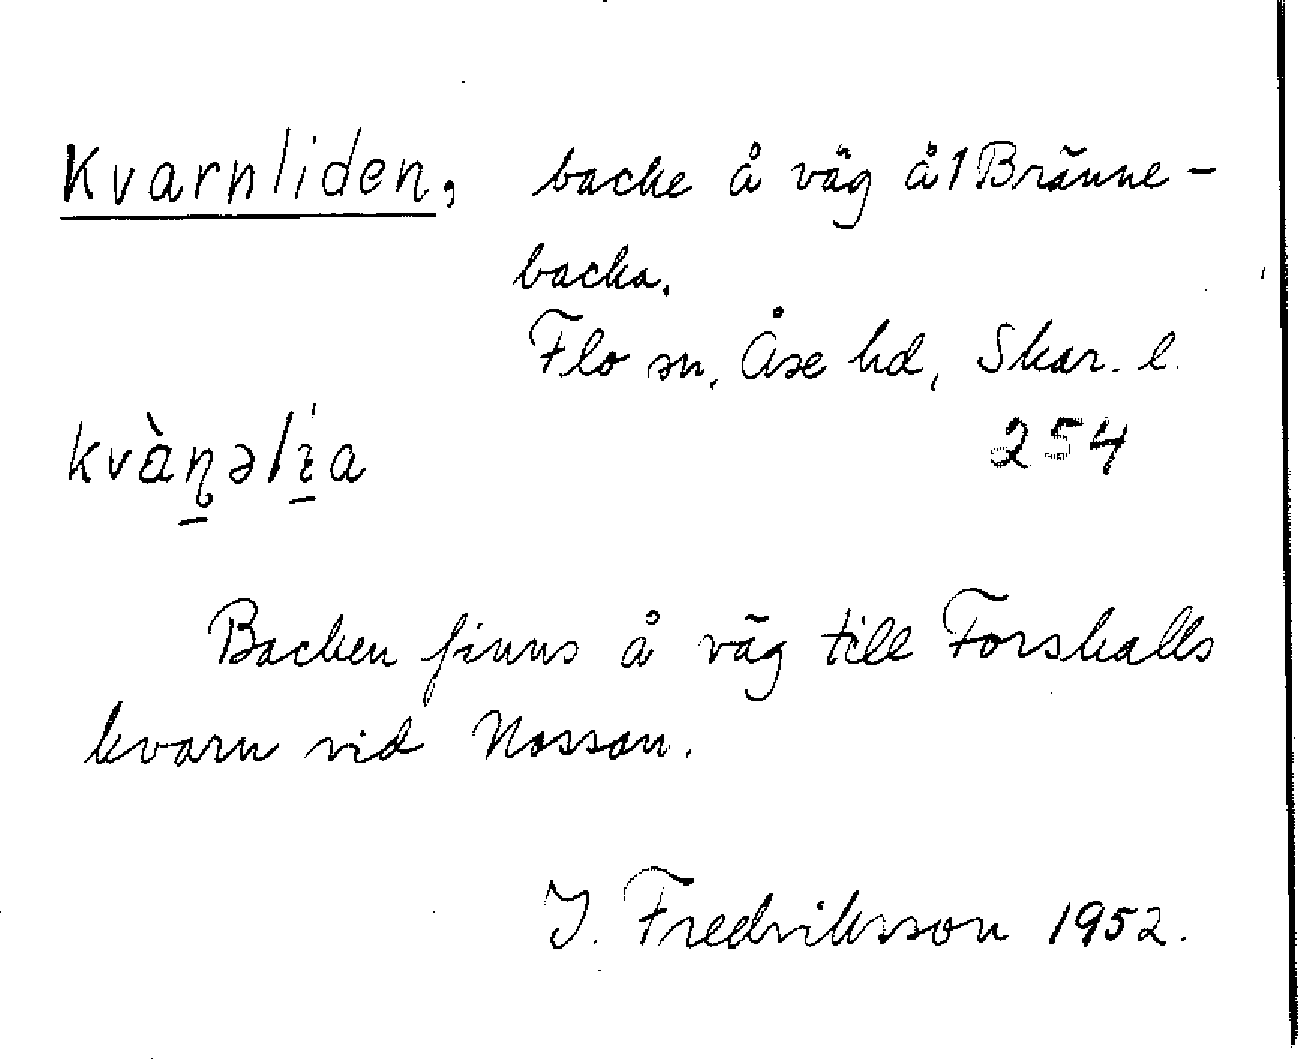 Kvarnliden, backe å väg å 1 Bränne-
backa.
Flo sn, Åse hd, Skar. l.
254
Backen finns å väg till Forshalls
kvarn vid Nossan.
J. Fredriksson 1952.